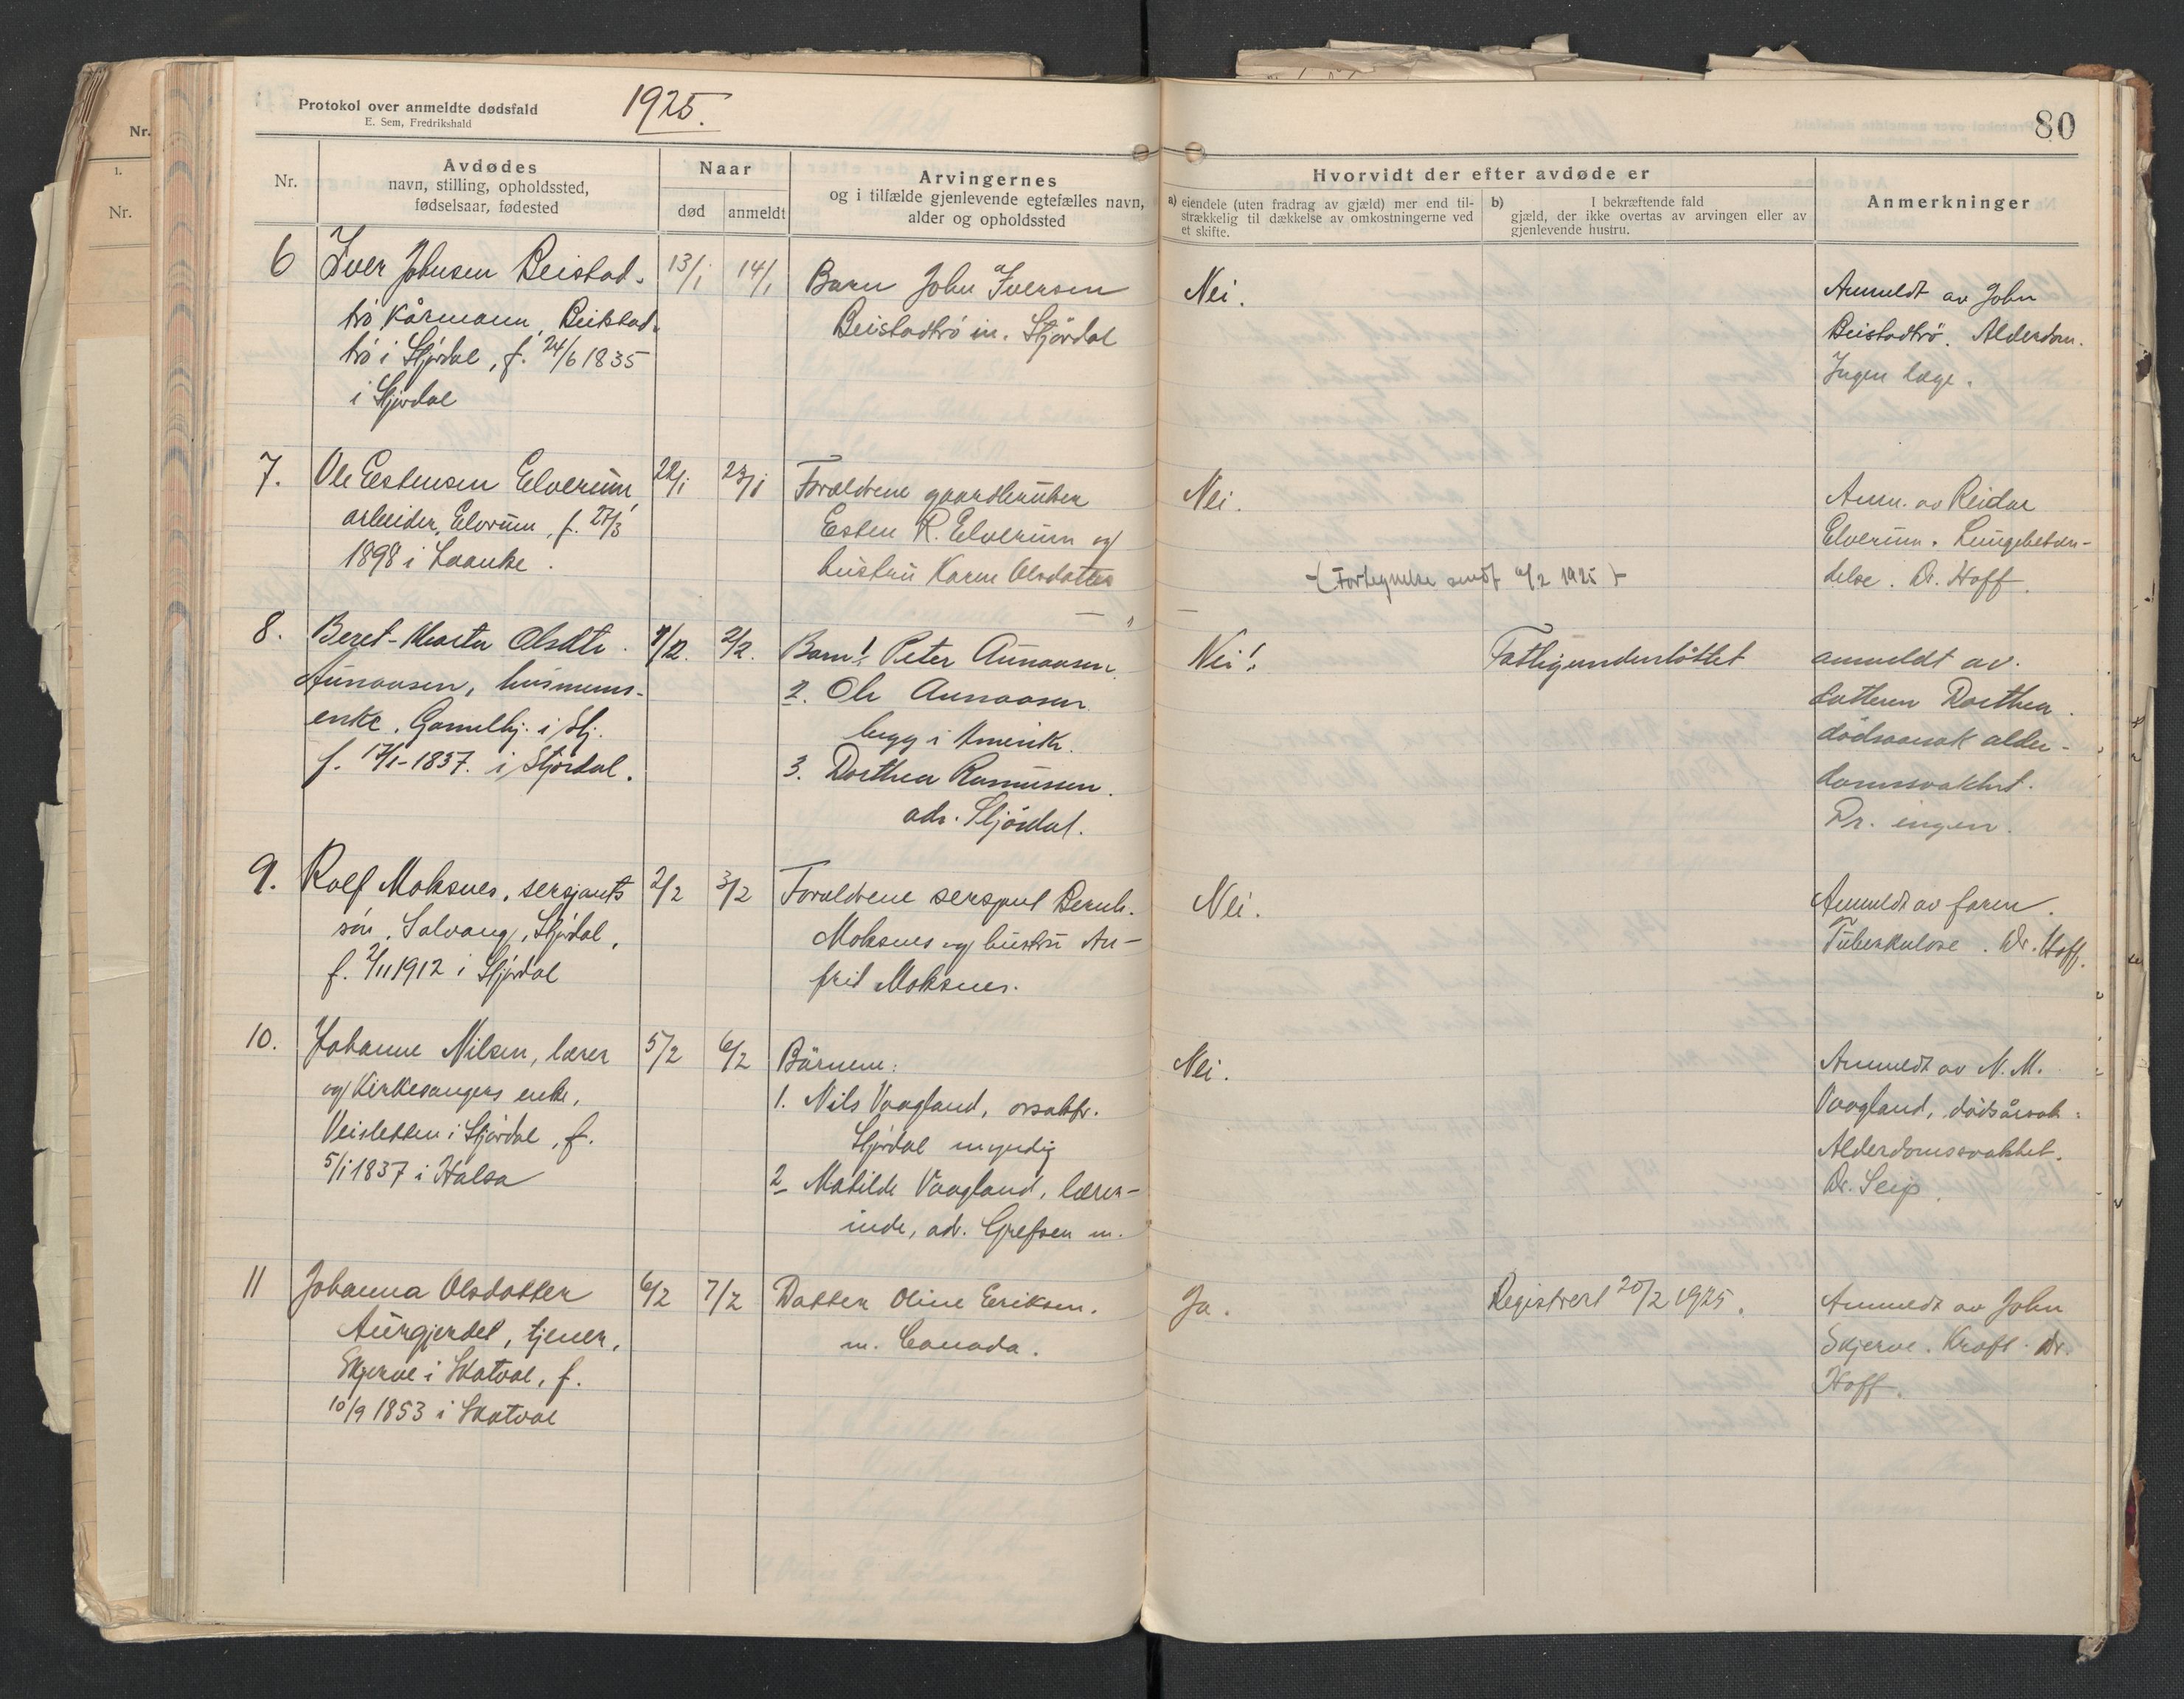 Nr.
1.
Nr.
Protokol over anmeldte dødsfald
E. Sem, Fredrikshald
1925.
80
Nr.
Avdødes
navn, stilling, opholdssted,
fødselsaar, fødested
Naar
død
anmeldt
Arvingernes
og i tilfælde gjenlevende egtefælles navn,
alder og opholdssted
Hvorvidt der efter avdøde er
a) eiendele (uten fradrag av gjæld) mer end til-
strækkelig til dækkelse av omkostningerne ved
et skifte.
b) I bekræftende fald
gjæld, der ikke overtas av arvingen eller av
gjenlevende hustru.
Anmerkninger
6
Iver Johnsen Beistad-
trö Kårmann, Beistad-
trö i Stjørdal, f. 24/6 1835
i Stjørdal
13/1
14/1
Barn John Iversen
Beistadtrö m. Stjördal
Nei.
Anmeldt av John
Beistadtrö. Alderdom.
Ingen læge.
7.
Ole Estensen Elverum
arbeider, Elvrum, f. 27/3
1898 i Laanke.
22/1
23/1
Forældrene gaardbruker
Esten R. Elverum og
hustru Karen Olsdatter
Nei.
(Fortegnelse sendt /2 1925)
Anm. av Reidar
Elverum. Lungebetæn-
delse. Dr. Hoff.
8.
Beret-Marta Olsdtr.
Aunaasen, husmans-
enke. i Stj.
f. 17/1-1837. i Stjørdal.
/12.
2/2.
Barn 1. Peter Aunaasen.
2. Ole Aunaasen
bygg i Amerika.
3. Dorthea Rasmussen.
adr. Stjørdal.
Nei!
Fattigunderstöttet
anmeldt av.
datteren Dorthea.
dödsaarsak alder-
domssvakhet.
Dr. ingen.
9.
Rolf Moksnes, sersjants
sön, Solvang, Stjørdal,
f. 2/11 1912 i Stjørdal
2/2
3/2
Forældrene sersjant Bernh.
Moksnes og hustru An-
frid Moksnes.
Nei.
Anmeldt av faren.
Tuberkulose. Dr. Hoff.
10.
Johanne Nilsen, lærer
og Kirkesangers enke,
Veisletten i Stjørdal, f.
5/1 1837 i Halsa
5/2
6/2
Bårnene:
1. Nils Vaagland, orsakfr.
Stjørdal myndig
2 Matilde Vaagland, lærer-
inde, adr. Grefsen m.
Nei.
Anmeldt av N. M.
Vaagland, dødsårsak:
Alderdomssvakhet.
Dr. Seip.
11
Johanna Olsdatter
Aurgjerdet, tjener,
Skjerve i Skatval, f.
10/9 1853 i Skatval
6/2
7/2
Datter Oline Eriksen.
m. Canada.
Ja.
Registrert 20/2 1925.
Anmeldt av John
Skjerve. Kræft. Dr.
Hoff.